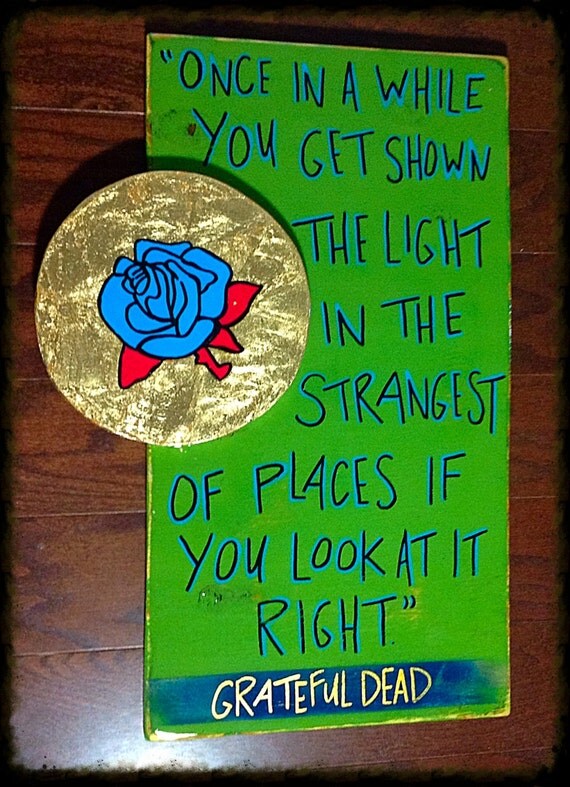 "ONCE IN A WHILE
YOU GET SHOWN
THE LIGHT
IN THE
STRANGEST
OF PLACES IF
YOU LOOK AT IT
RIGHT."
GRATEFUL DEAD